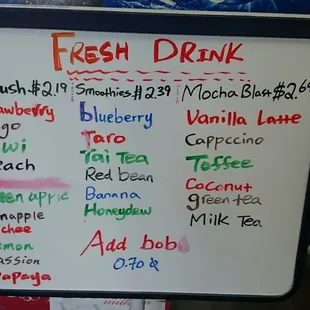 FRESH DRINK
ush $2.19
awberry
go
wi
each
een apple
napple
chee
emon
assion
apaya
Smoothies $2.39
blueberry
Taro
Tai Tea
Red bean
Banana
Honeydew
Mocha Blast $2.6
Vanilla Latte
Cappccino
Toffee
Coconut
green tea
Milk Tea
Add bob
0.70 ¢